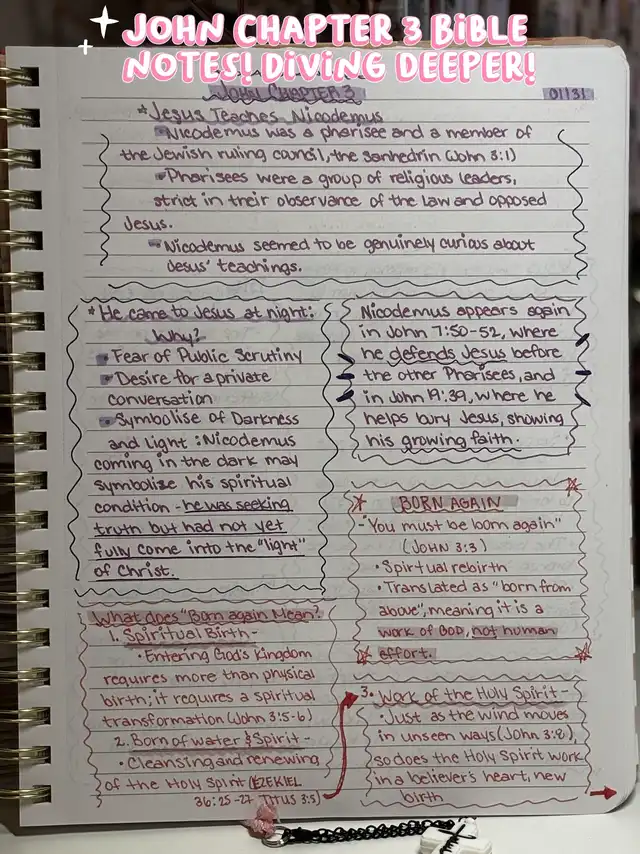 JOHN CHAPTER 3 BIBLE
NOTES! DIVING DEEPER!
JOHN CHAPTER 3
01131
*Jesus Teaches Nicodemus
Nicodemus was a pharisee and a member of
the Jewish ruling council, the sanhedrin (John 3:1)
Pharisees were a group of religious leaders,
strict in their observance of the law and opposed
Jesus.
Nicodemus seemed to be genuinely curious about
Jesus' teachings.
*He came to Jesus at night:
Why?
Fear of Public Scrutiny
Desire for a private
conversation
Symbolise of Darkness
and Light: Nicodemus
coming in the dark may
symbolize his spiritual
condition - he was seeking
truth but had not yet
fully come into the "light"
of Christ.
Nicodemus appears again
in John 7:50-52, where
he defends Jesus before
the other Pharisees, and
in John 19:39, where he
helps bury Jesus, showing
his growing faith.
BORN AGAIN
-"You must be born again"
(JOHN 3:3)
• Spirtual rebirth
• Translated as "born from
above", meaning it is a
work of GOD, not human
effort.
What does "Born again Mean?
1. Spiritual Birth-
• Entering God's Kingdom
requires more than physical
birth; it requires a spiritual
transformation (John 3:5-6)
2. Born of water & Spirit-
• Cleansing and renewing
of the Holy Spirit (EZEKIEL
36:25-27, TITUS 3:5)
3. Work of the Holy Spirit-
• Just as the wind moves
in unseen ways (John 3:8),
so does the Holy Spirit work
in a believer's heart, new
birth